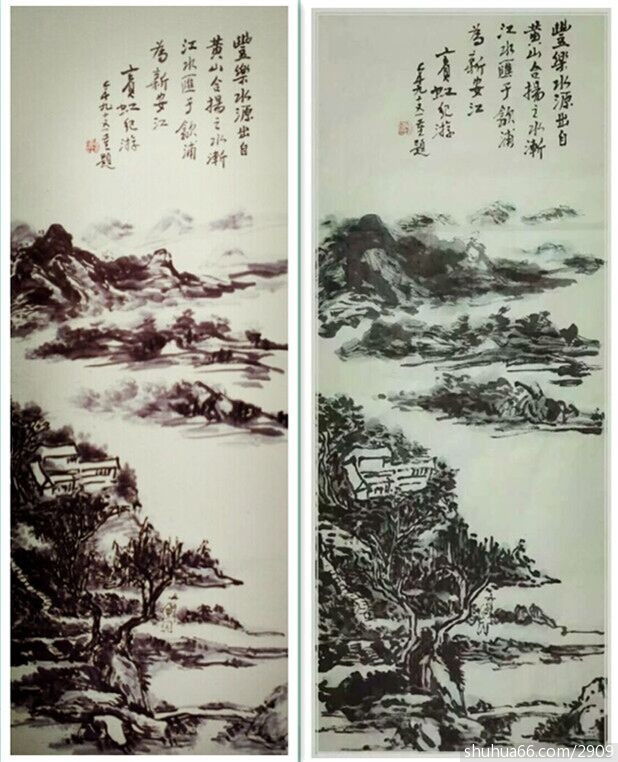 豐樂水源出自
黃山合揚之水漸
江水匯于歙浦
為新安江
賓虹紀游
午九十又一重題
豐樂水源出自
黃山合揚之水漸
江水匯于歙浦
為新安江
賓虹紀游
午九十又一重題
shuhua66.com/2909